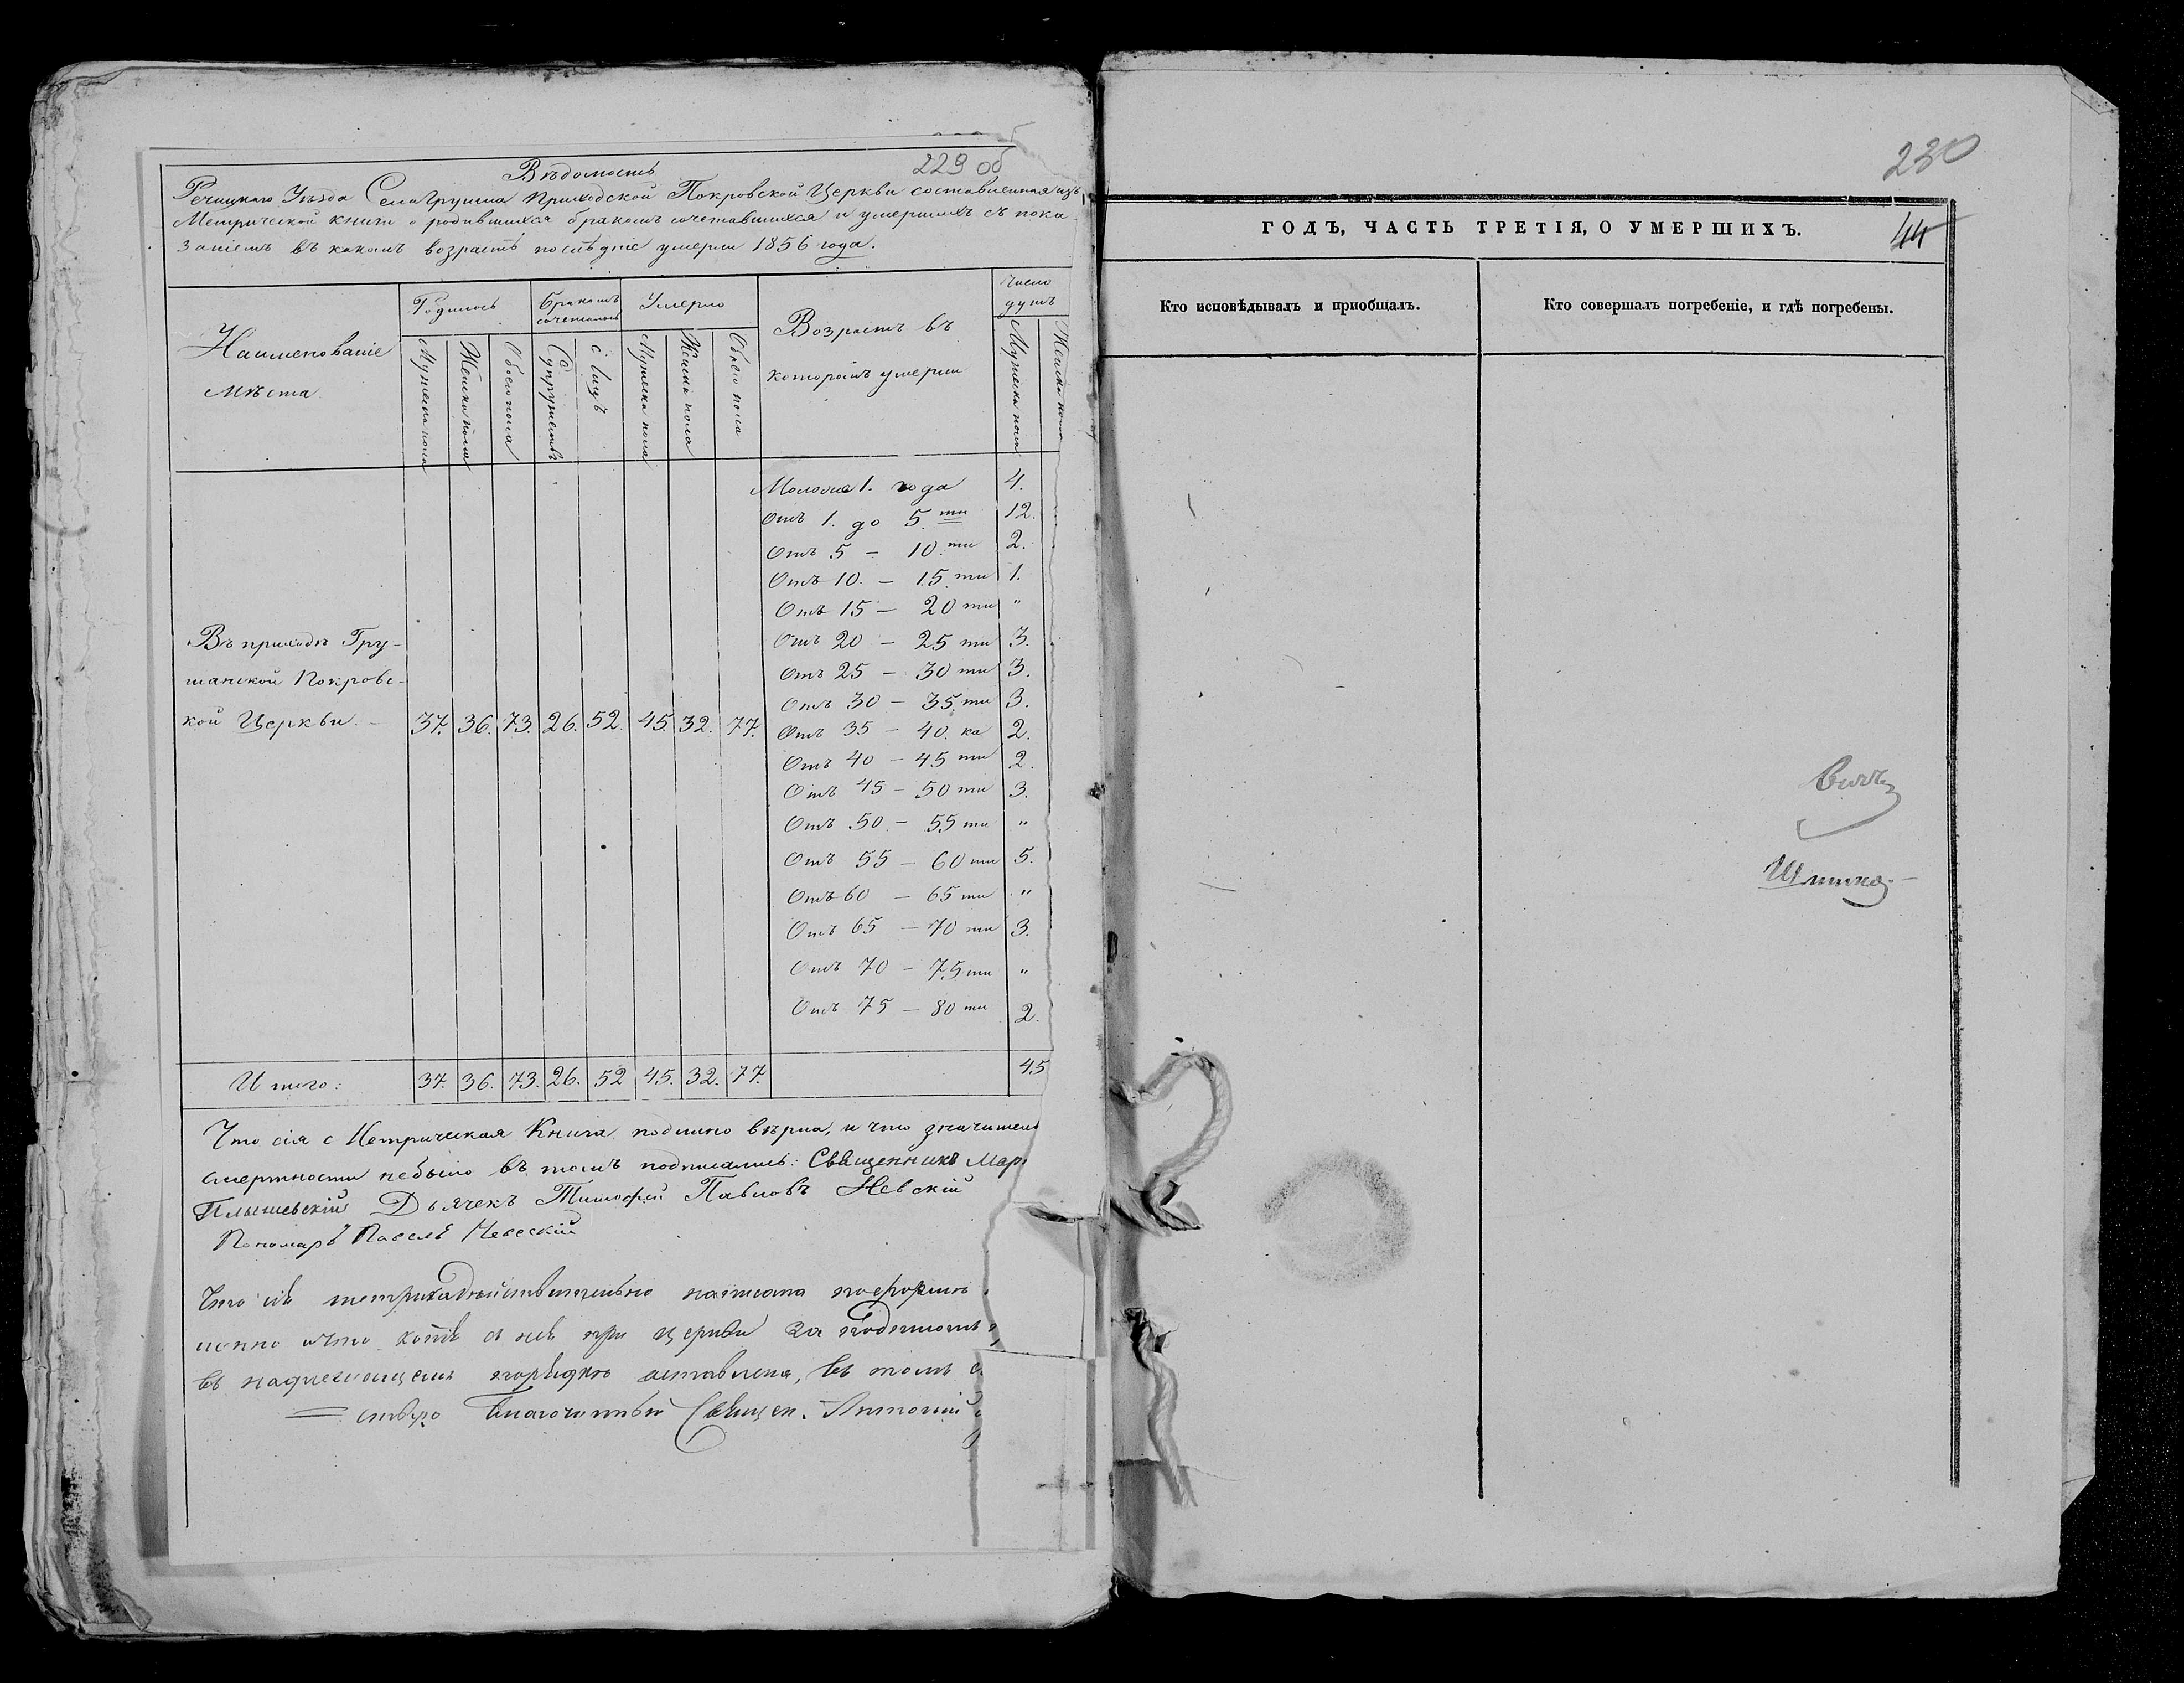 229 об
Вѣдомость
Речицкаго Уѣзда Села Грушна Приходской Покровской Церкви составленная изъ
Метрической книги о родившихся бракомъ сочетавшихся и умершихъ съ пока
заніемъ въ какомъ возрастѣ послѣдніе умерли 1856 года.
Наименованіе
мѣста
Родилось
Бракомъ
сочеталось
Умерло
Возрастъ въ
которомъ умерли
Число
душъ
Мужеска пола
Женска пола
Обоего пола
Супружествъ
Лицъ
Мужеска пола
Женска пола
Обоего пола
Мужеска пола
Женска пола
Моложе 1. года 4.
Отъ 1. до 5.ти 12.
Отъ 5 – 10.ти 2.
Отъ 10. – 15.ти 1.
Отъ 15 – 20 ти "
Отъ 20 – 25 ти 3.
Отъ 25 – 30 ти 3.
Отъ 30 – 35.ти 3.
Отъ 35 – 40. ка 2.
Отъ 40 – 45 ти 2.
Отъ 45 – 50 ти 3.
Отъ 50 – 55 ти "
Отъ 55 – 60 ти 5.
Отъ 60 – 65 ти "
Отъ 65 – 70 ти 3.
Отъ 70 – 75 ти "
Отъ 75 – 80 ти 2.
Въ приходѣ Гру-
шанской Покровс-
кой Церкви. – 37. 36. 73. 26. 52. 45. 32. 77.
Итого: 37. 36. 73. 26. 52 45. 32. 77. 45
Что сія Метрическая Книга подлино вѣрна, и что значител
смертности небыло въ томъ подписались: Священникъ Мар
Плышевскій Дьячекъ Тимофей Павловъ Невскій
Пономарь Павелъ Невскій
Что сія метрика дѣйствительно написана по формѣ
и что копія съ нея при церкви за подписомъ
въ надлежащемъ порядкѣ оставлена, въ томъ с
ствую Благочинный Священ. Антоній
230
ГОДЪ, ЧАСТЬ ТРЕТІЯ, О УМЕРШИХЪ.
44
Кто исповѣдывалъ и пріобщалъ.
Кто совершалъ погребеніе, и гдѣ погребены.
вичъ